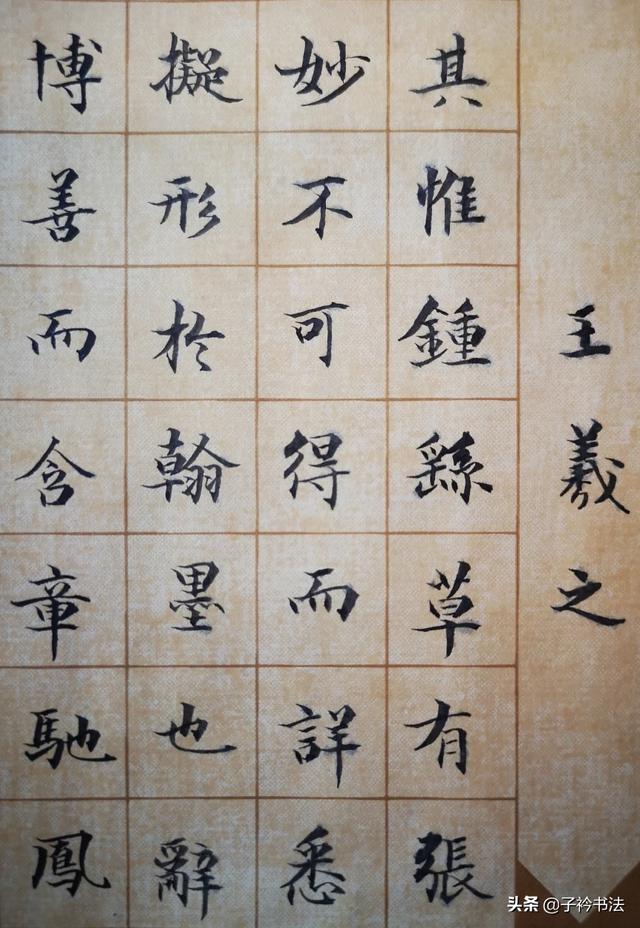 王羲之
其惟鍾繇草有張
妙不可得而詳悉
擬形於翰墨也辭
博善而含章馳鳳
头条 @子衿书法